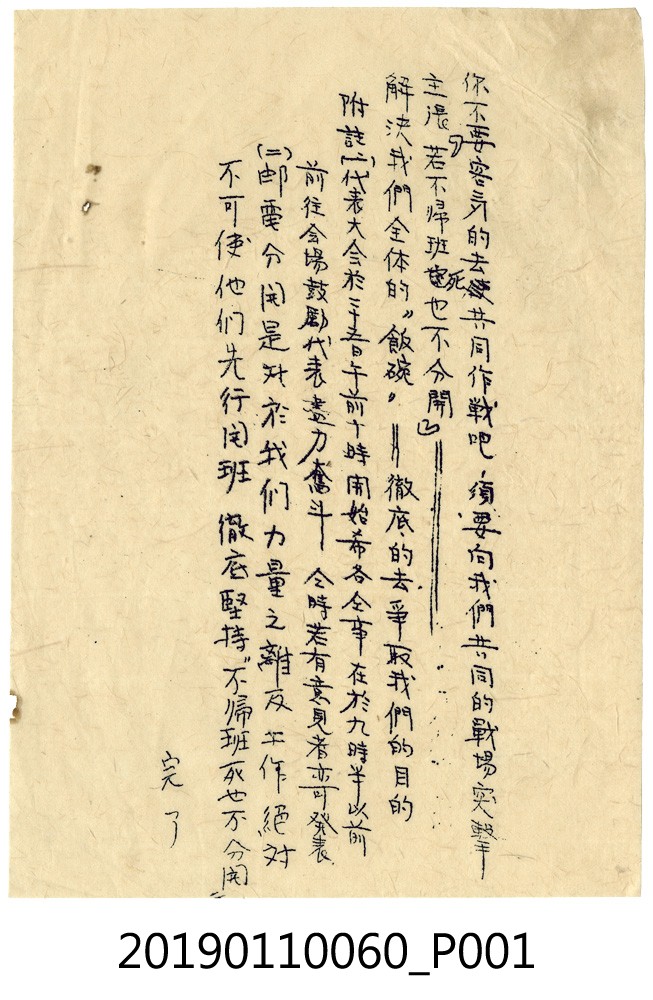 你不要客氣的去共同作戰吧，須要向我們共同的戰場突擊
主張「若不帰班死也不分開」
解決我們全体的"飯碗"＝徹底的去爭取我們的目的
附註(一)代表大会於二十五日午前十時開始希各仝事在於九時半以前
前往会場鼓勵代表盡力奮斗 仝時若有意見者亦可發表
(二)郵電分開是対於我们力量之離反工作絕対
不可使他们先行開班 徹底堅持"不帰班死也不分開
完了
20190110060_P001